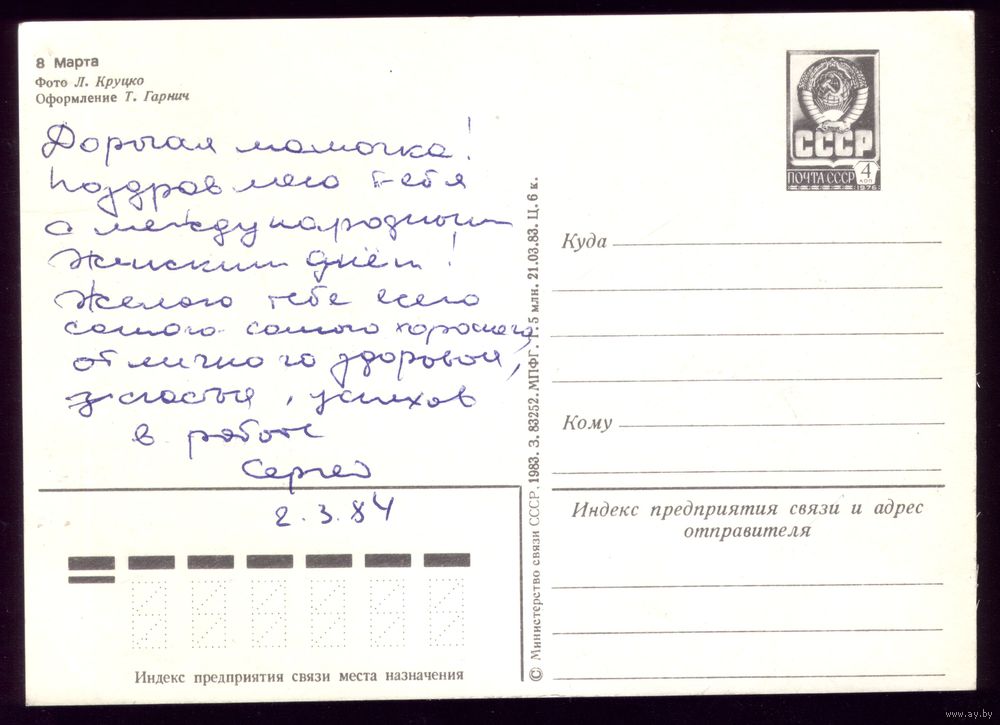 8 Марта
Фото Л. Круцко
Оформление Т. Гарнич
Дорогая мамочка!
Поздравляю тебя
с международным
Женским днём!
Желаю тебе всего
самого-самого хорошего,
отличного здоровья,
счастья, успехов
в работе
Сергей
2.3.84
Индекс предприятия связи места назначения
© Министерство связи СССР, 1983. З. 83252. МПФГ. Т. 5 млн. 21.03.83. Ц. 6 к.
СССР
ПОЧТА СССР
4
КОП
1976
Куда
Кому
Индекс предприятия связи и адрес
отправителя
www.ay.by